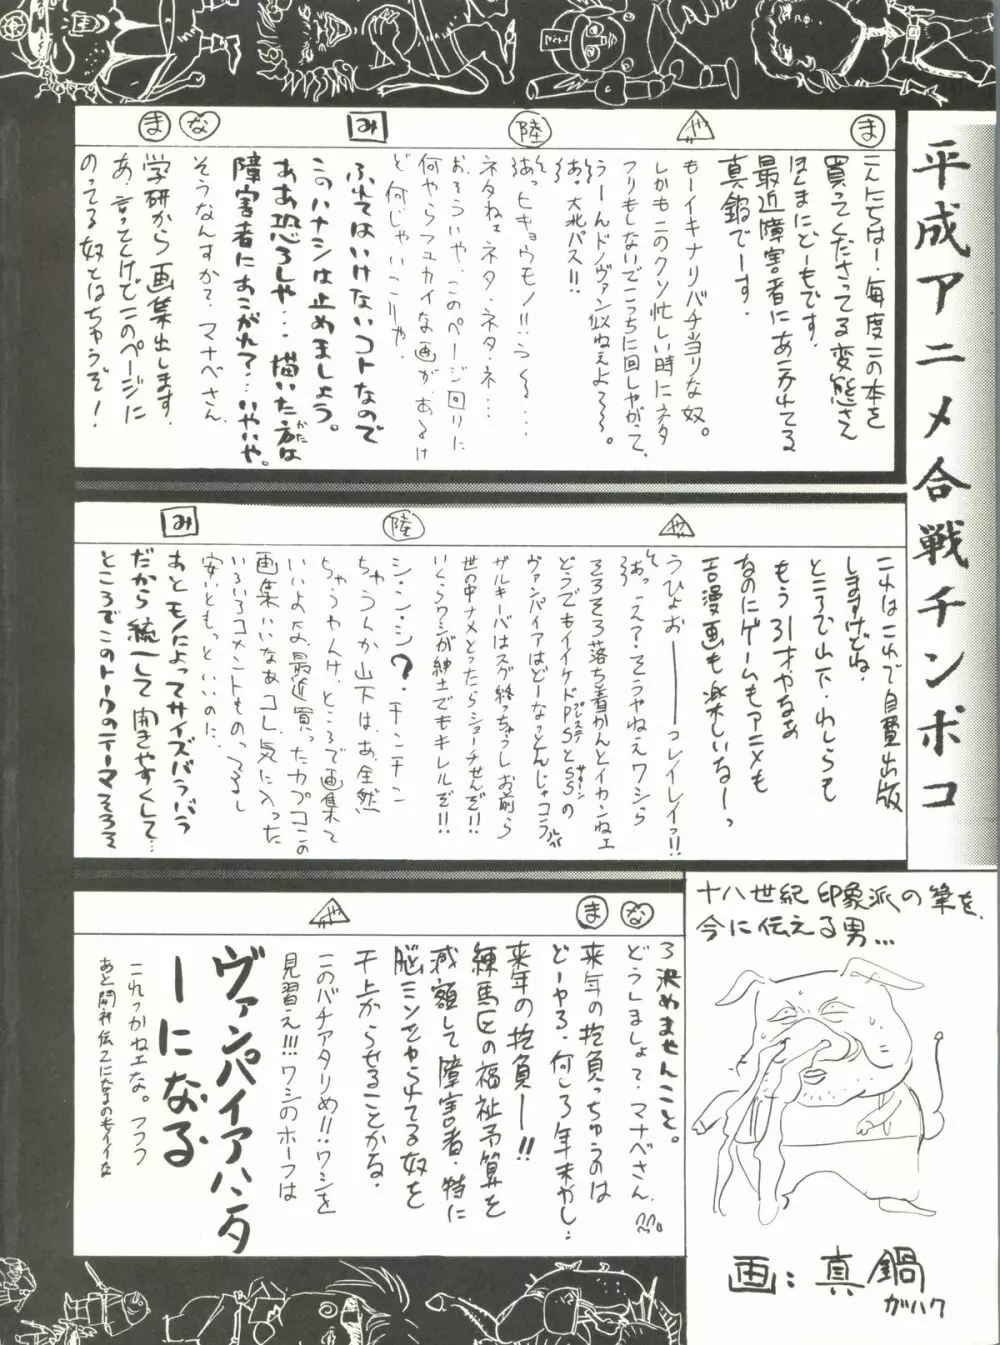 平成アニメ合戦チンポコ
ま
こんにちはー・毎度この本を
買ってくださってる変態さん
ほんまにどーもです。
最近障害者にあこがれてる
真鍋でーす。
や
もーイキナリバチ当りな奴。
しかもこのクソ忙しい時にネタ
フリもしないでこっちに回しやがって、
うーんドノヴァン似ねぇよるる。
あっ大北パス!!
陸
あっヒキョウモノ!!う〜〜…
ネタねェネタ・ネタ・ネ…
おろういや、このページ回りに
何やらフユカイな画があるけ
ど何じゃいこりゃ。
み
ふれてはいけないコトなので
このハナシは止めましょう。
ああ恐ろしや…描いた方は
かた
障害者にあこがれて?…いやいや。
な
そうなんすか?マナベさん
ま
学研から画集出します。
あ、言っとくけどこのページに
のってる奴とはちゃうぞ!
これはこれで自費出版
しますけどね。
ところで山下・わしらも
もう31才やなあ
なのにゲームもアニメも
エロ漫画も楽しいなーっ
や
うひょおーーーっレイレイっ!!
あっえ?そうやねえワシら
そろそろ落ち着かんとイカンねェ
どうでもイイケドPSとSSの
プレステ
サターン
ヴァンパイアはどーなっとんじゃコラ
ザルキーバはスグ終っちゃうしお前ら
世の中ナメとったらショーチせんぞ!!
いくらワシが紳士でもキレルぞ!!
陸
シ・ン・シ?・チンチン
ちゃうんか山下は、あ、全然
ちゃうやんけ、ところで画集て
いいよな、最近買ったカプコンの
画集いいなあコレ、気に入った
いろいろコメントものってるし
安いともっといいのに、
み
あとモノによってサイズバラバラ
だから統一して開きやすくして…
ところでこのトークのテーマそろそ
ろ決めませんこと。
な
どうしましょ?マナベさん
ま
来年の抱負っちゅうのは
どーやろ、何しろ年末やし…
来年の抱負ー!!
練馬区の福祉予算を
減額して障害者・特に
脳ミソをやられてる奴を
干上からせることかな.
や
このバチアタリめ!!ワシを
見習え!!!ワシのホーフは
ヴァンパイアハンタ
ーになる
これっかねェな。フフフ
十八世紀印象派の筆を、
今に伝える男…
画:真鍋
ガハク